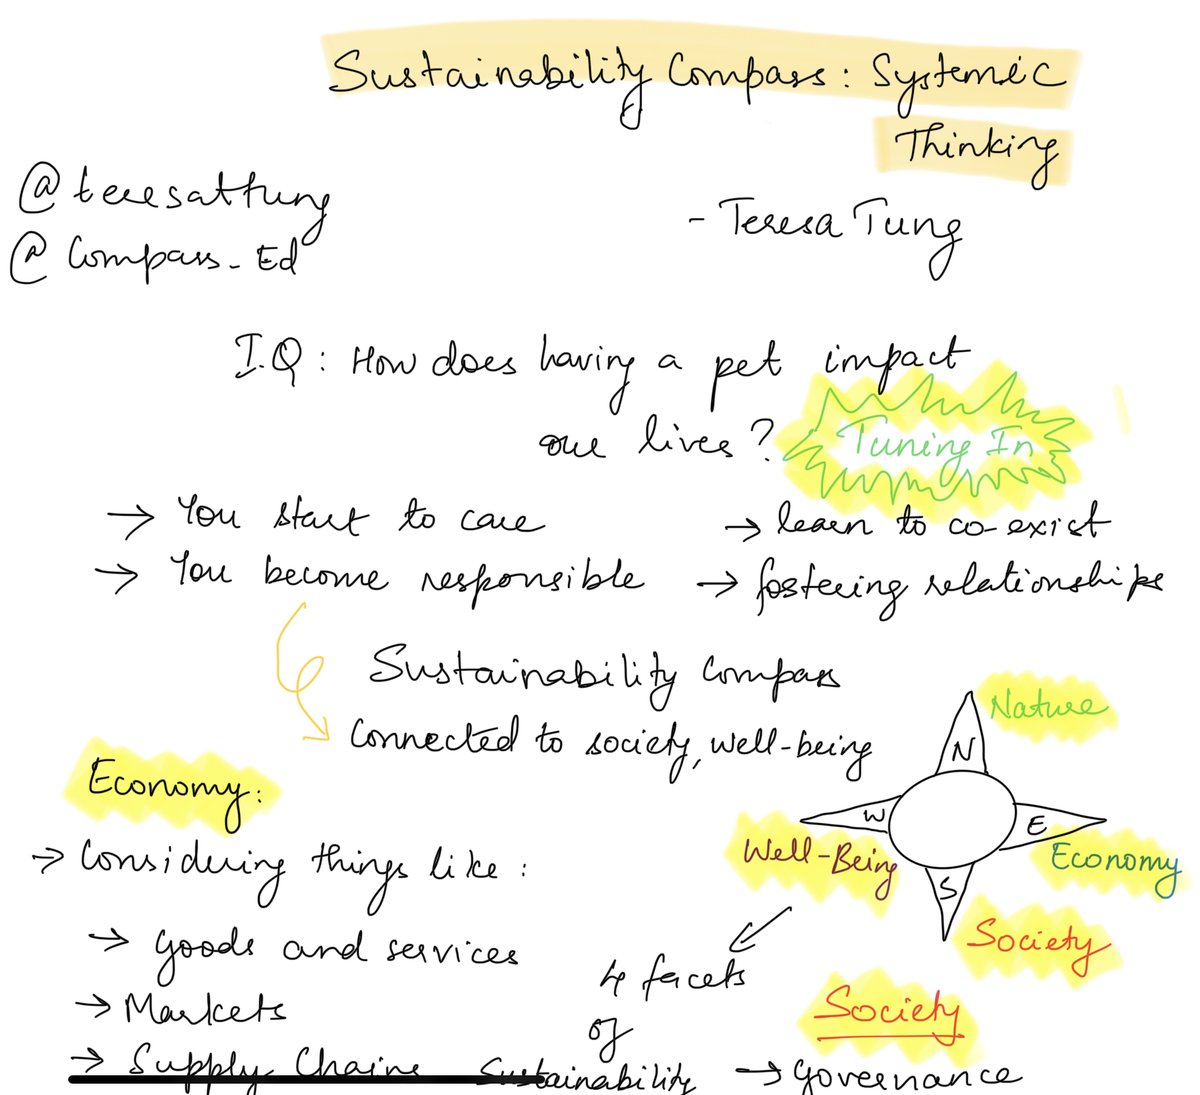 Sustainability Compass: Systemic
Thinking
@teresattung
@Compass_Ed
- Teresa Tung
I.Q: How does having a pet impact
our lives?
Tuning In
→ You start to care
→ learn to co-exist
→ You become responsible
→ fostering relationships
Sustainability Compass
Connected to society, well-being
Nature
N
W
E
S
Well-Being
Economy
Society
Economy:
→ Considering things like:
→ goods and services
→ Markets
→ Supply Chains
4 facets
of
Sustainability
Society
→ Governance